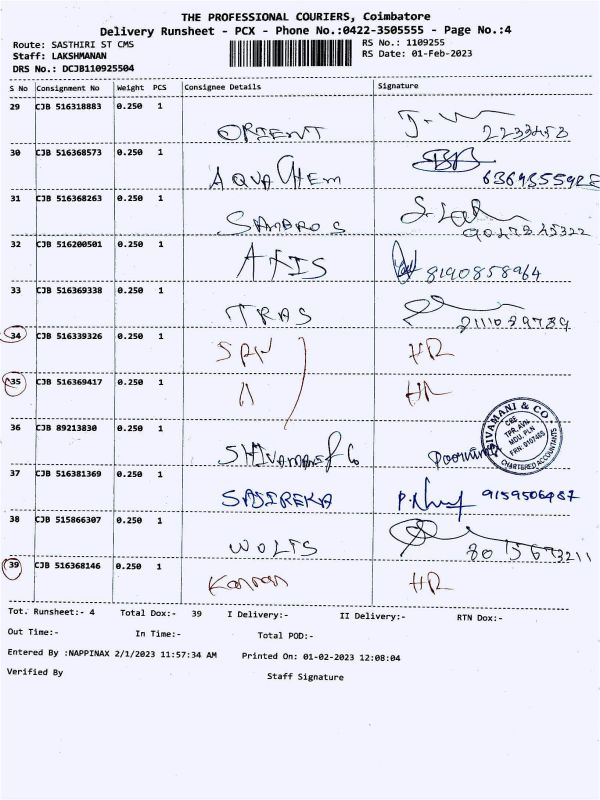 THE PROFESSIONAL COURIERS, Coimbatore
Delivery Runsheet - PCX - Phone No.:0422-3505555 - Page No.:4
Route: SASTHIRI ST CMS RS No.: 1109255
Staff: LAKSHMANAN RS Date: 01-Feb-2023
DRS No.: DCJB110925504
S No Consignment No Weight PCS Consignee Details Signature
29 CJB 516318883 0.250 1
ORIENT 2233453
30 CJB 516368573 0.250 1
AQUA CHEM
31 CJB 516368263 0.250 1
32 CJB 516200501 0.250 1
AXIS 8190858964
33 CJB 516369338 0.250 1
TRAS
34 CJB 516339326 0.250 1
HR
35 CJB 516369417 0.250 1
11 HR
36 CJB 89213830 0.250 1
SIVAMANI & CO
CBE
TPR, AVN,
MDU, PLN
CHARTERED ACCOUNTANTS
Poornima
37 CJB 516381369 0.250 1
SASIREKA 9159506487
38 CJB 515866307 0.250 1
WOLTS
39 CJB 516368146 0.250 1
Kannan HR
Tot. Runsheet:- 4 Total Dox:- 39 I Delivery:- II Delivery:- RTN Dox:-
Out Time:- In Time:- Total POD:-
Entered By :NAPPINAX 2/1/2023 11:57:34 AM Printed On: 01-02-2023 12:08:04
Verified By Staff Signature